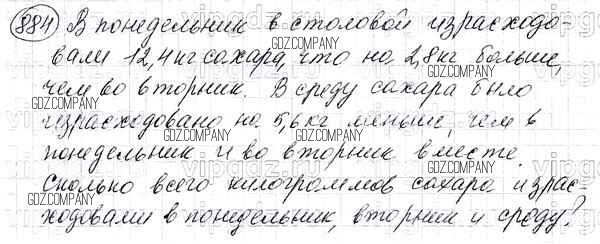 884) В понедельник в столовой израсходо-
вали 12,4 кг сахара, что на 2,8 кг больше,
чем во вторник. В среду сахара было
израсходовано на 5,6 кг меньше, чем в
понедельник и во вторник вместе.
Сколько всего килограммов сахара израс-
ходовали в понедельник, вторник и среду?
GDZ.COMPANY
vipgdz.com